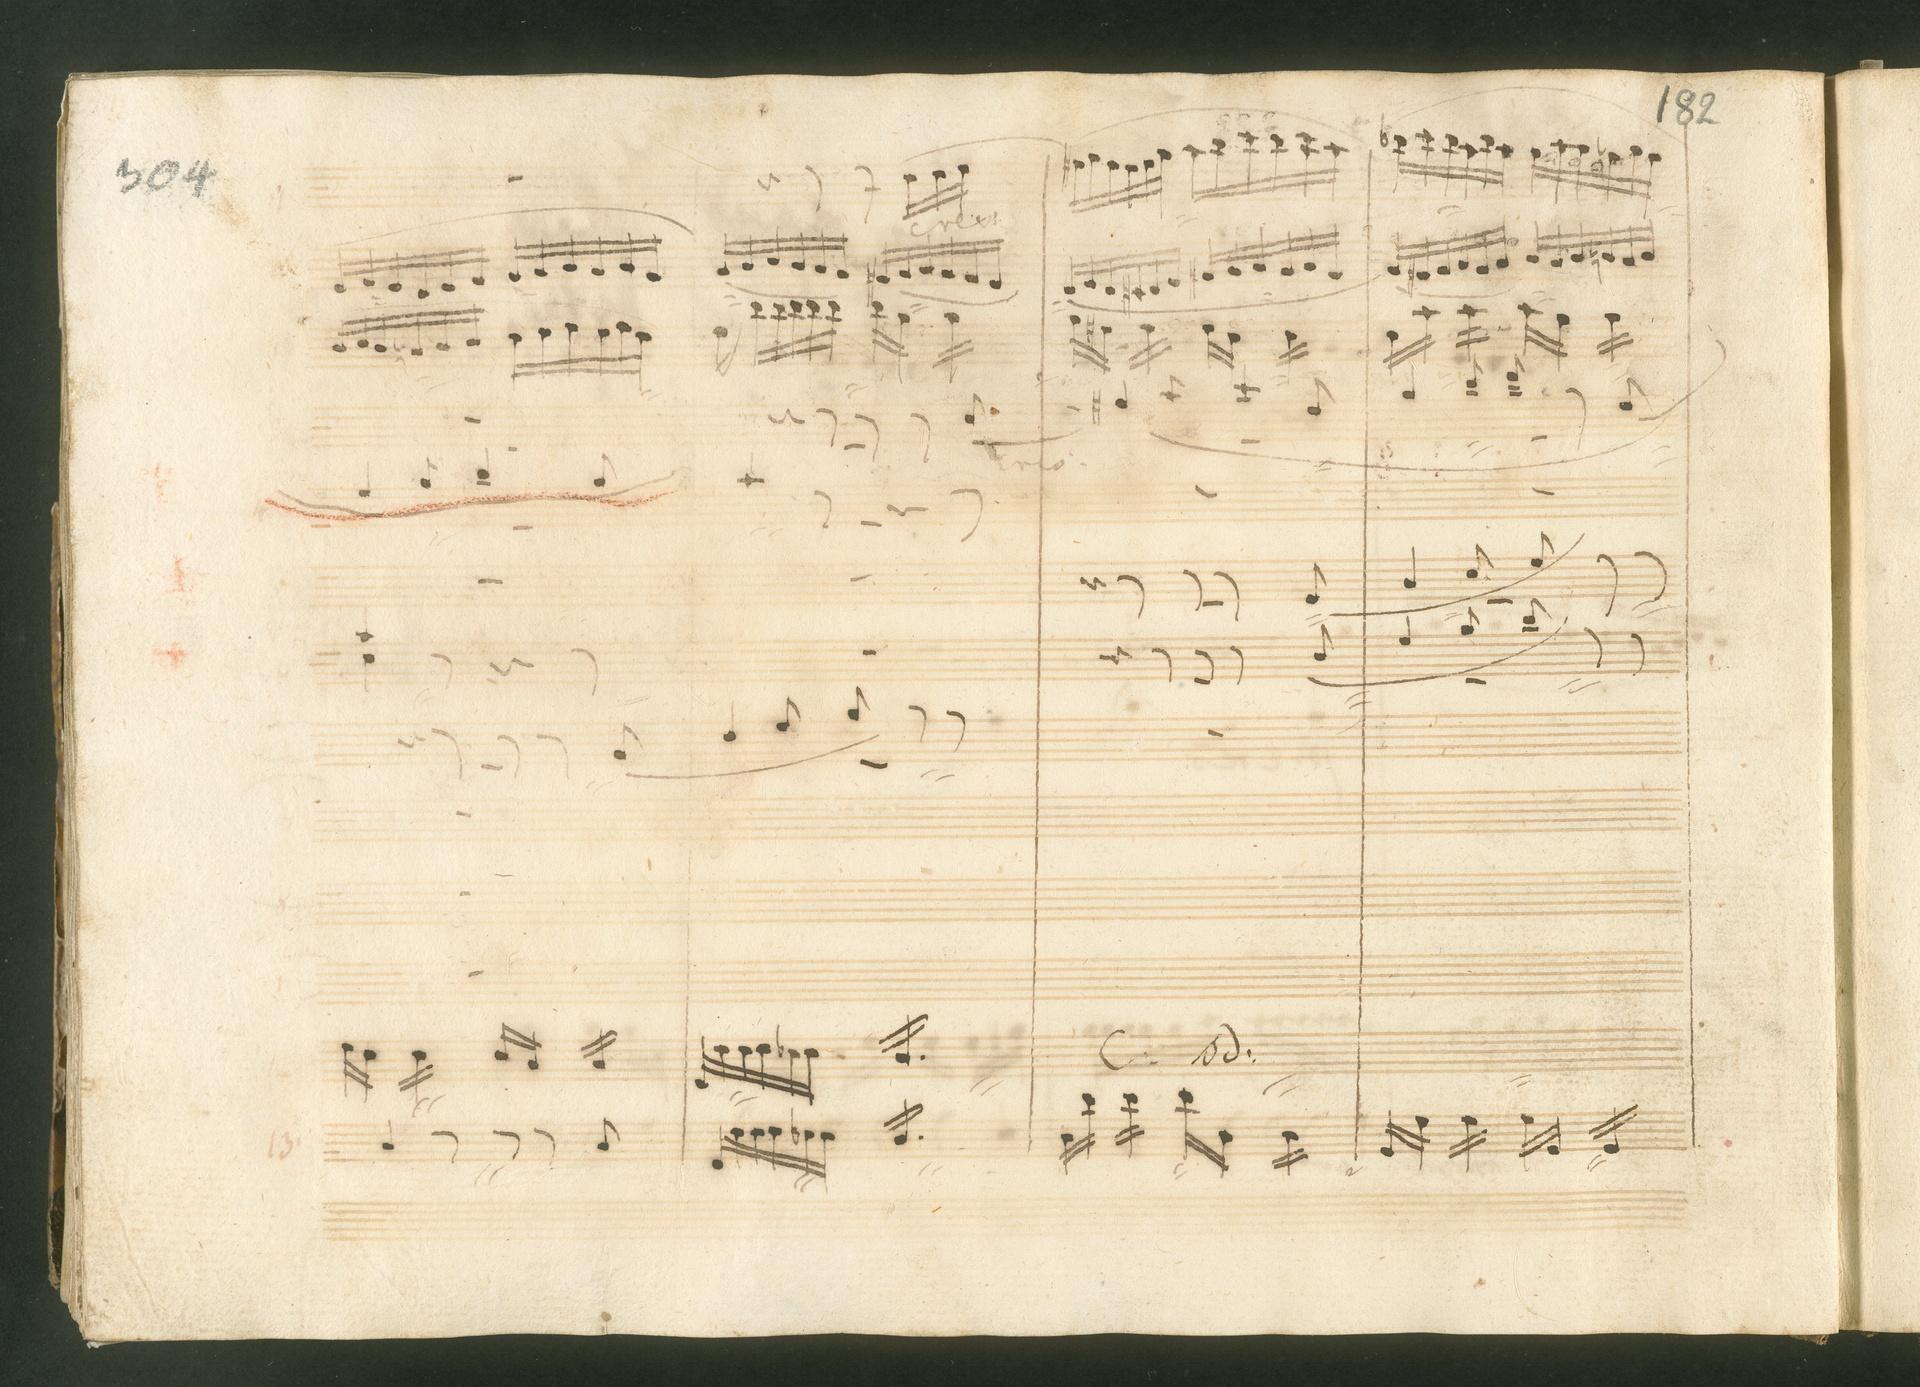 182
304
cresc
cres.
C. B:
13